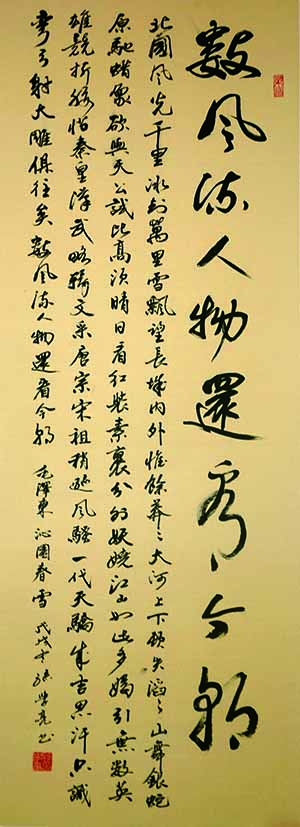 數風流人物還看今朝
北國風光千里冰封萬里雪飄望長城內外惟餘莽々大河上下頓失滔々山舞銀蛇
原馳蠟象欲與天公試比高須晴日看紅裝素裹分外妖嬈江山如此多嬌引無數英
雄競折腰惜秦皇漢武略輸文采唐宗宋祖稍遜風騷一代天驕成吉思汗只識
彎弓射大雕俱往矣數風流人物還看今朝 毛澤東 沁園春雪 戊戌